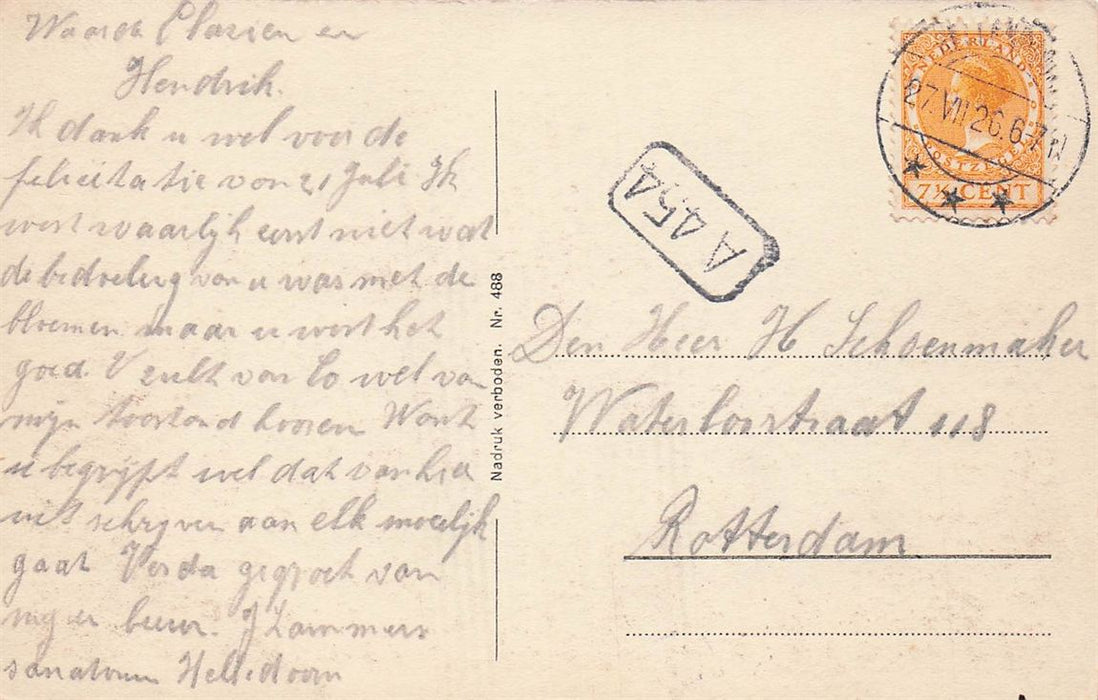 Waarde Clasien en
Hendrik.
Ik dank u wel voor de
felicitatie van 21 Juli Ik
wist waarlijk eerst niet wat
de bedoeling van u was met de
bloemen maar u wist het
goed. U zult van Co wel van
mijn toestand hooren Want
u begrijpt wel dat van hier
uit schrijven aan elk moeilijk
gaat Verda gegroet van
mij er buur. J Lammers
sanatorium Hellendoorn
Nadruk verboden. Nr. 488
NEDERLAND
POSTZEGEL
7½ CENT
27.VII.26.6-7N
A 454
Den Heer H Schoenmaker
Waterloostraat 118
Rotterdam